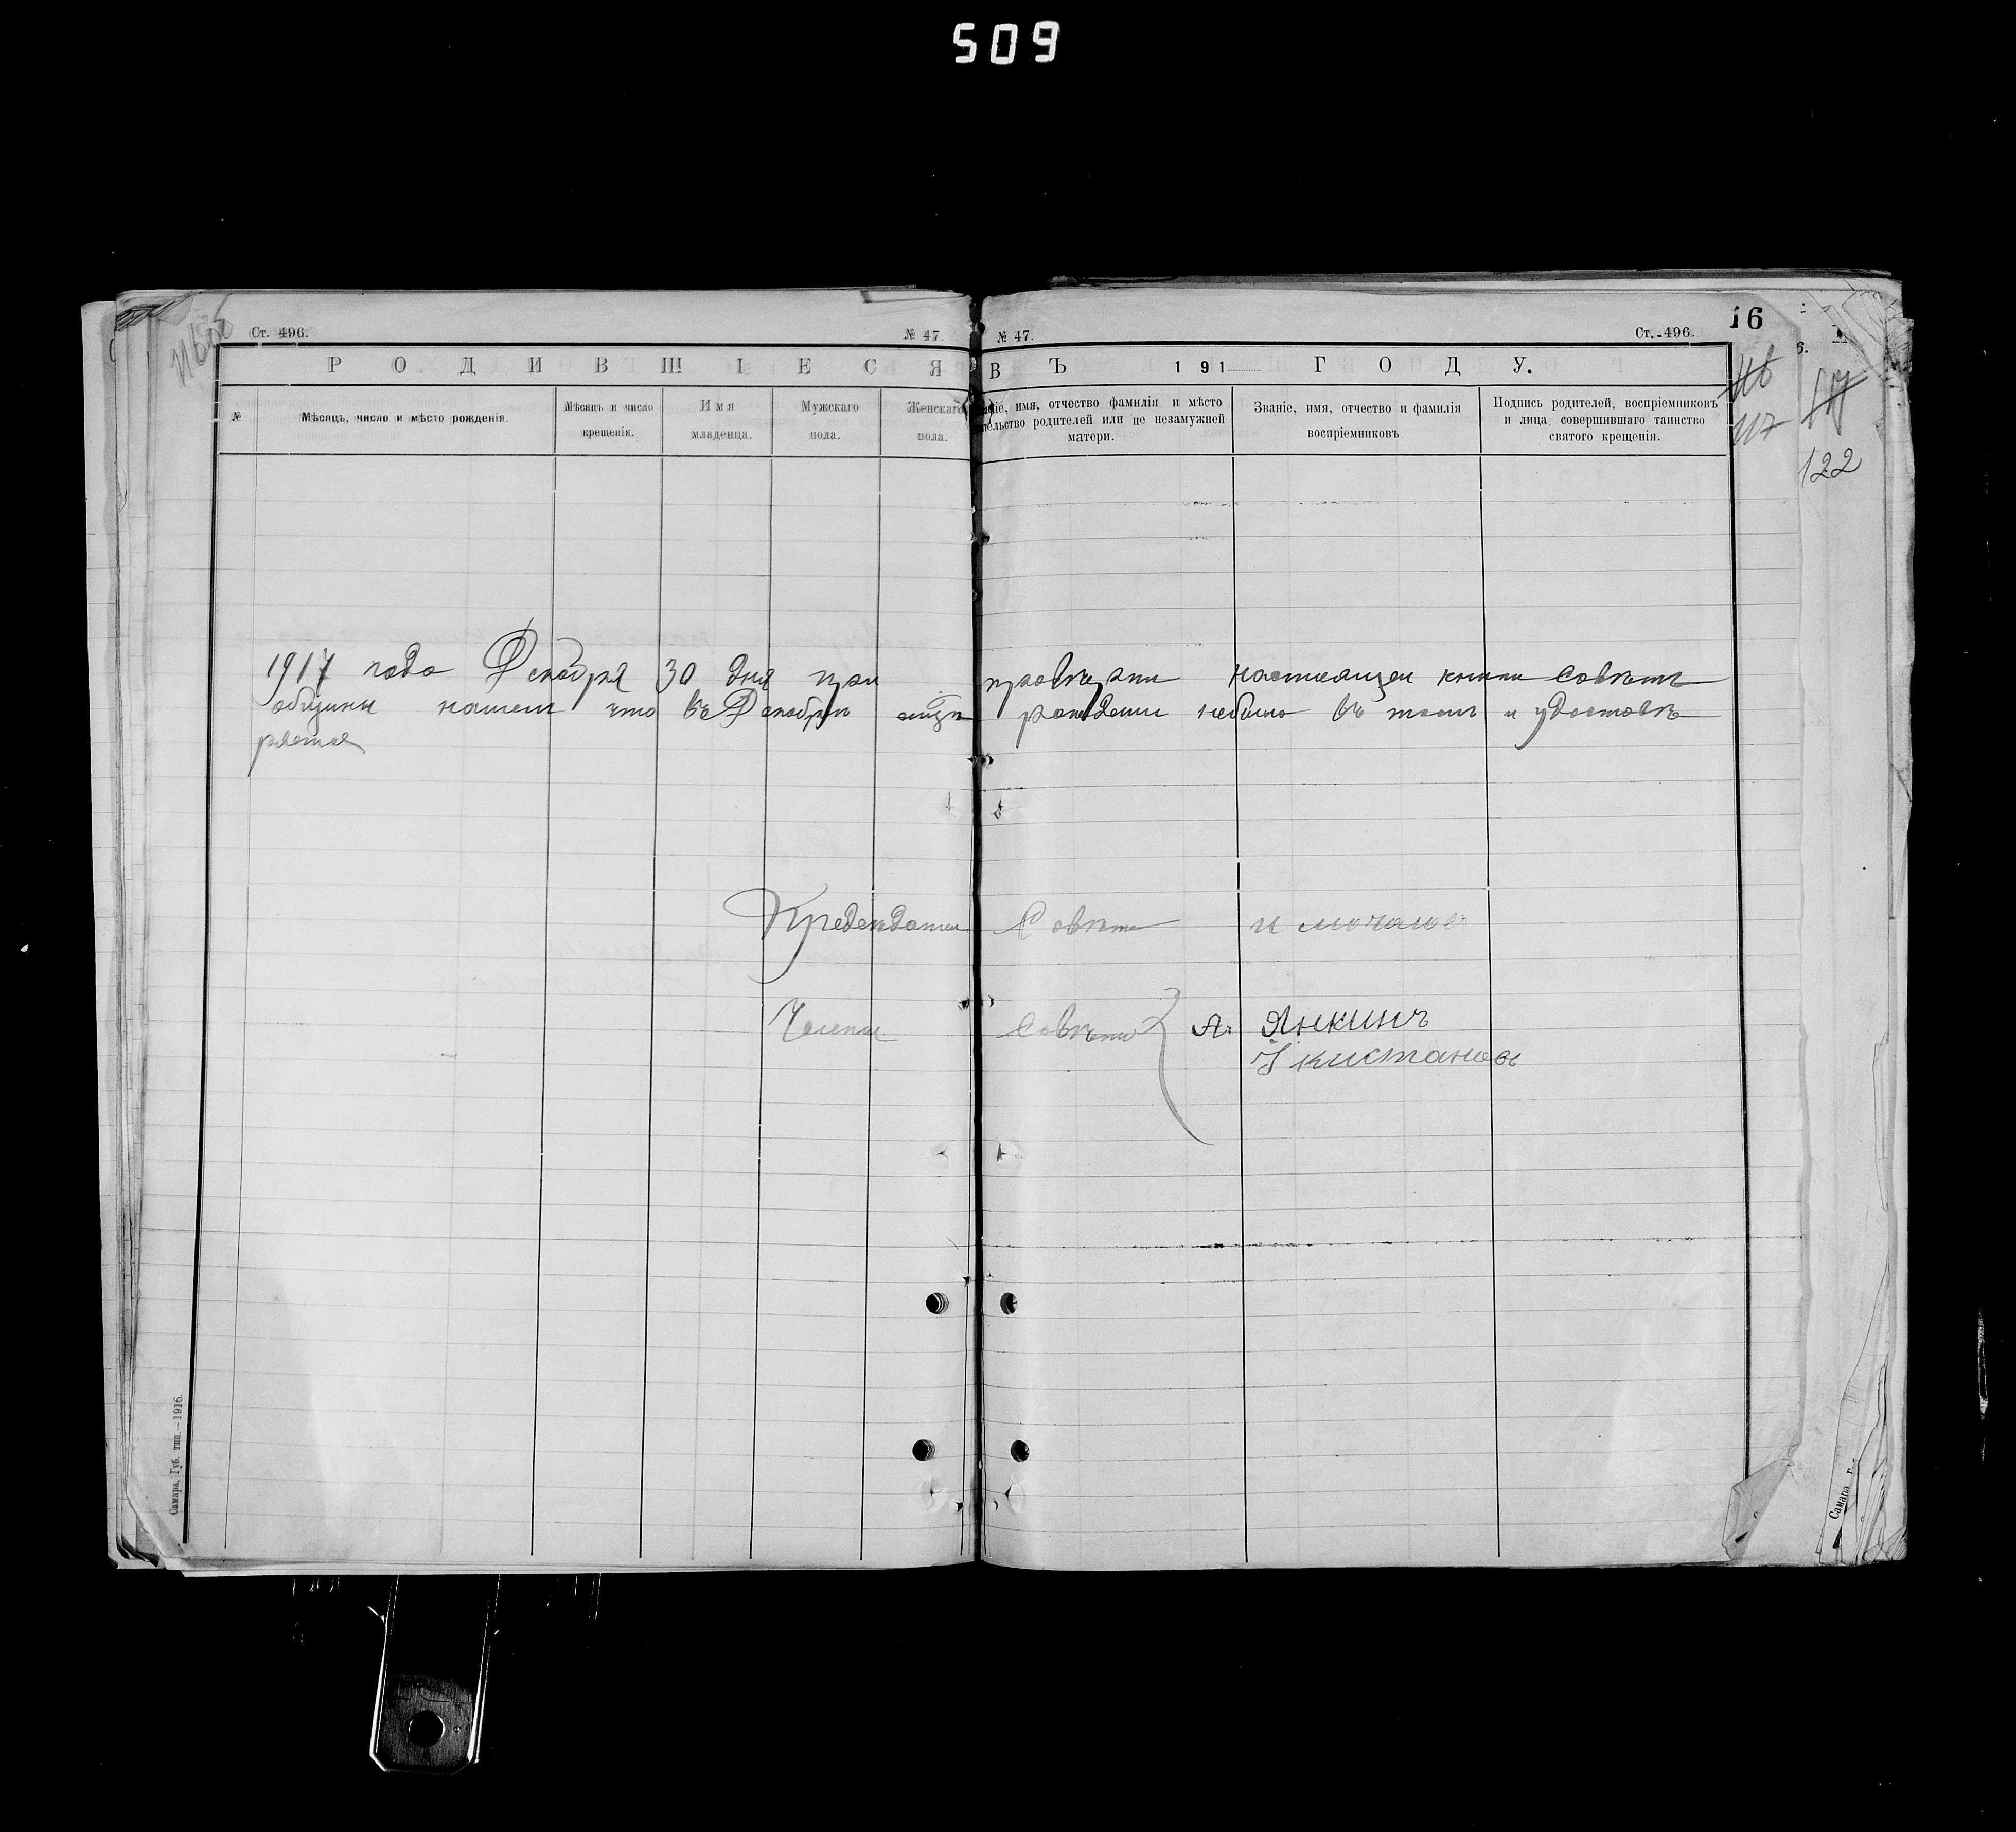 509
Ст. 496.
№ 47.
№ 47.
Ст. 496.
16
РОДИВШІЕСЯ
ВЪ 191 ГОДУ.
116
117
117
122
№
Мѣсяцъ, число и мѣсто рожденія.
Мѣсяцъ и число крещенія.
Имя младенца.
Мужскаго пола.
Женскаго пола.
аніе, имя, отчество фамилія и мѣсто
тельство родителей или не незамужней
матери.
Званіе, имя, отчество и фамилія
воспріемниковъ
Подпись родителей, воспріемниковъ
и лица совершившаго таинство
святого крещенія.
1917 года Декабря 30 дня при провѣрки настоящей книги Совѣтъ
общины нашелъ что въ Декабрѣ рожденни небыло въ томъ и удостовѣ
ряется
Совѣта
Члены Совѣта А. Янкинъ
Кистановъ
Самара, Губ. тип.—1916.
Самара